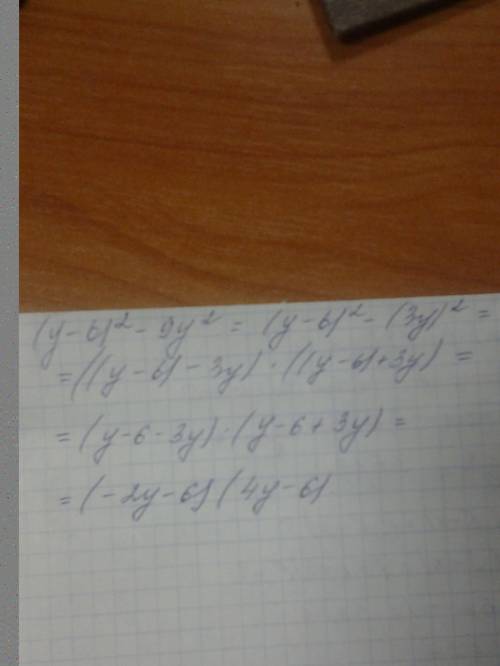 (y-6)² - 9y² = (y-6)² - (3y)² =
= ((y-6) - 3y) · ((y-6) + 3y) =
= (y-6-3y) · (y-6+3y) =
= (-2y-6) (4y-6)